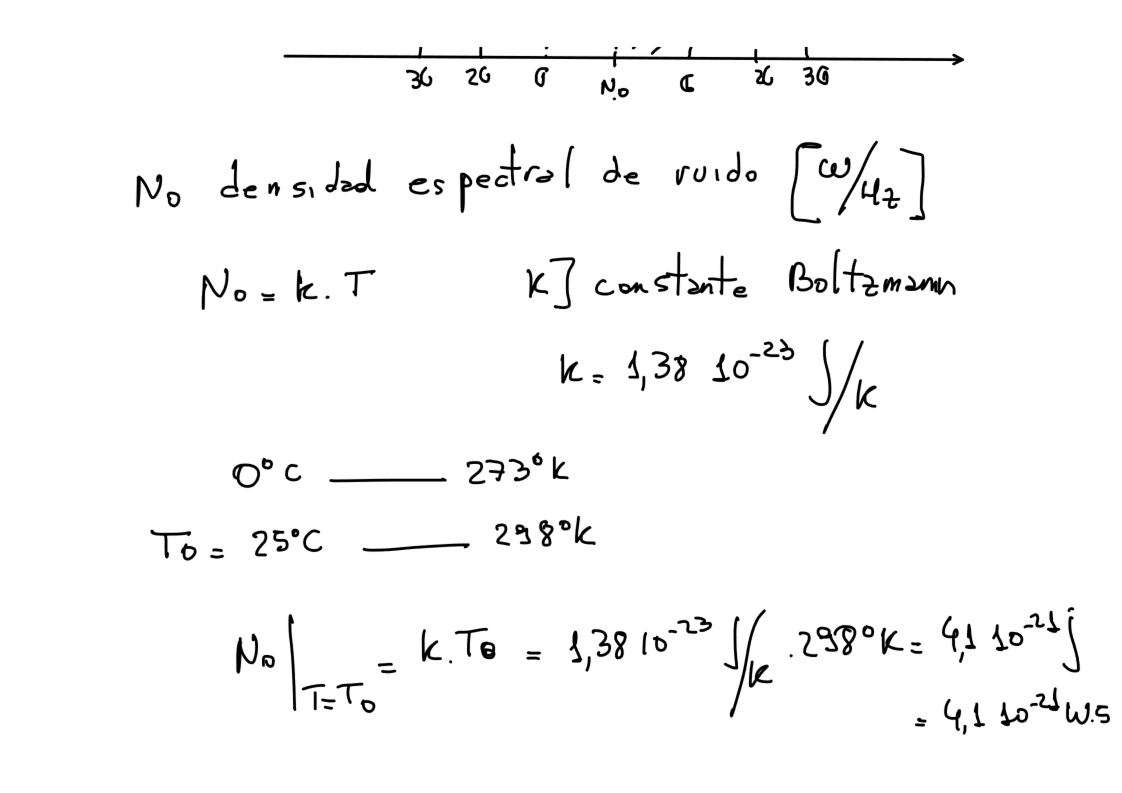 3σ 2σ σ No σ 2σ 3σ
No densidad espectral de ruido [W/Hz]
No = k.T K] constante Boltzmann
k = 1,38 10⁻²³ J/K
0°C —— 273°K
To = 25°C —— 298°K
No|T=To = k.To = 1,38 10⁻²³ J/K . 298°K = 4,1 10⁻²¹ j
= 4,1 10⁻²¹ W.s